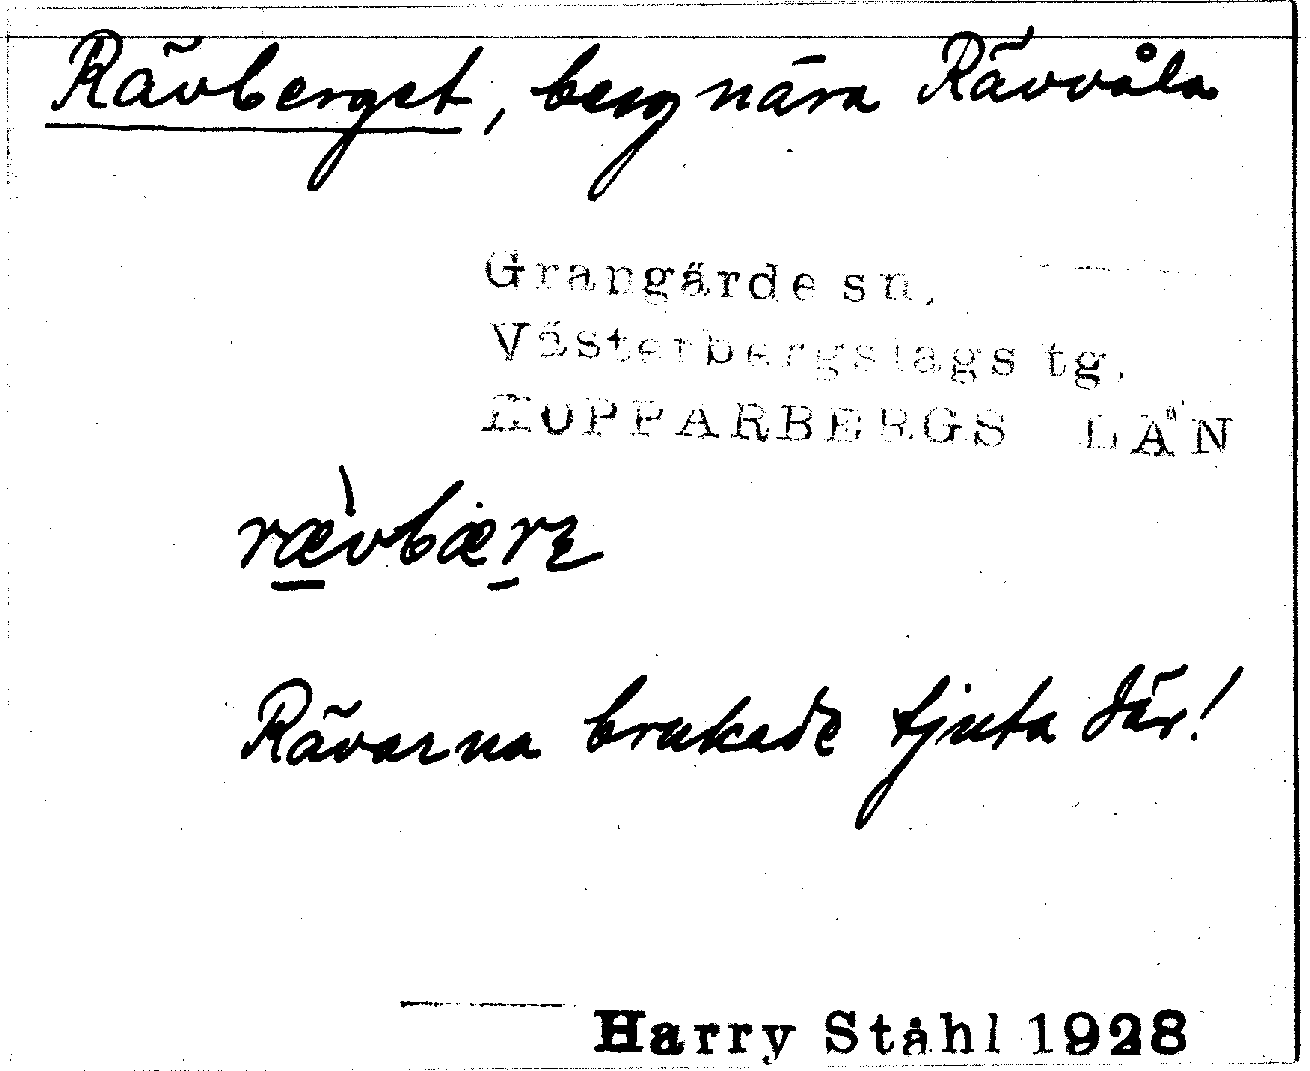 Rävberget, berg nära Rävvåla
Grangärde sn.
Västerbergslags tg.
KOPPARBERGS LÄN
rævbærε
Rävarna brukade tjuta där!
Harry Ståhl 1928